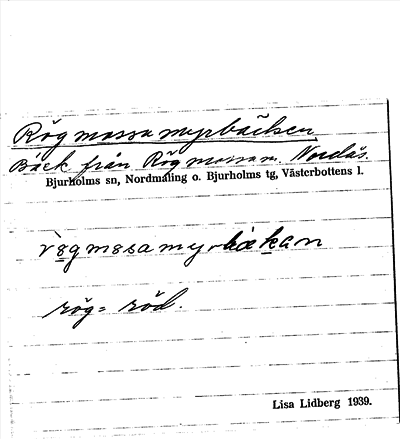 Rögmossamyrbäcken
Bäck från Rögmossam. Nordås.
Bjurholms sn, Nordmaling o. Bjurholms tg, Västerbottens l.
rög = röd.
Lisa Lidberg 1939.